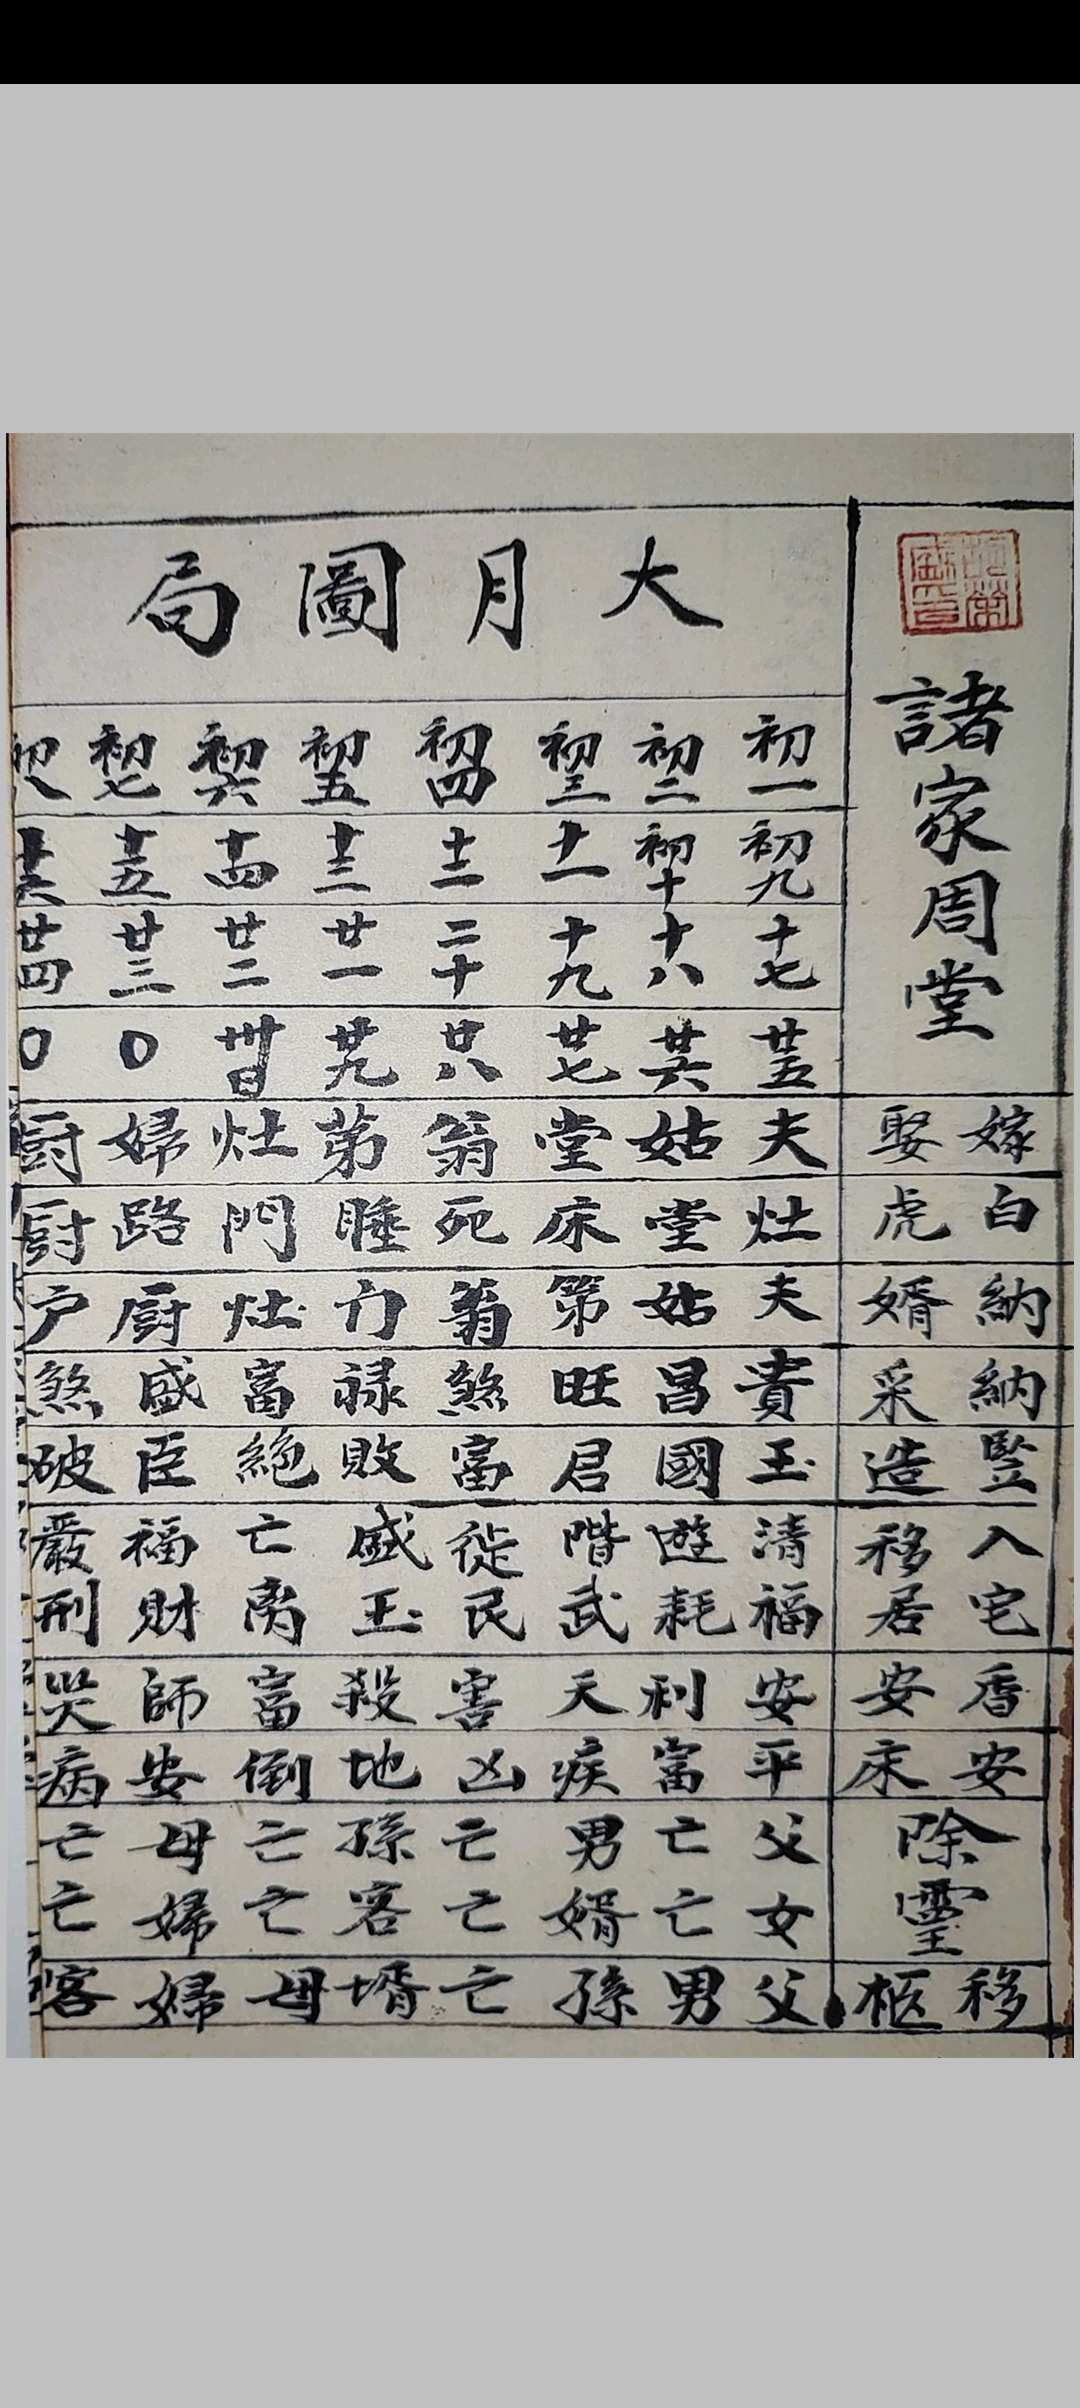 諸家周堂
大月圖局
初一 初二 初三 初四 初五 初六 初七 初八
初九 初十 十一 十二 十三 十四 十五 十六
十七 十八 十九 二十 廿一 廿二 廿三 廿四
廿五 廿六 廿七 廿八 廿九 卅日 〇 〇
嫁娶 夫 姑 堂 翁 苐 灶 婦 厨
白虎 灶 堂 床 死 睡 門 路 厨
納婿 夫 姑 第 翁 门 灶 厨 户
納采 貴 昌 旺 煞 禄 富 盛 煞
竪造 玉 國 君 富 敗 絶 臣 破
入宅移居 清福 遊耗 階武 徙民 盛玉 亡离 福財 嚴刑
香安 安 利 天 害 殺 富 師 哭
安床 平 富 疾 凶 地 倒 安 病
除霊 父女 亡亡 男婿 亡亡 孫客 亡亡 母婦 亡亡
移柩 父 男 孫 亡 婿 母 婦 客